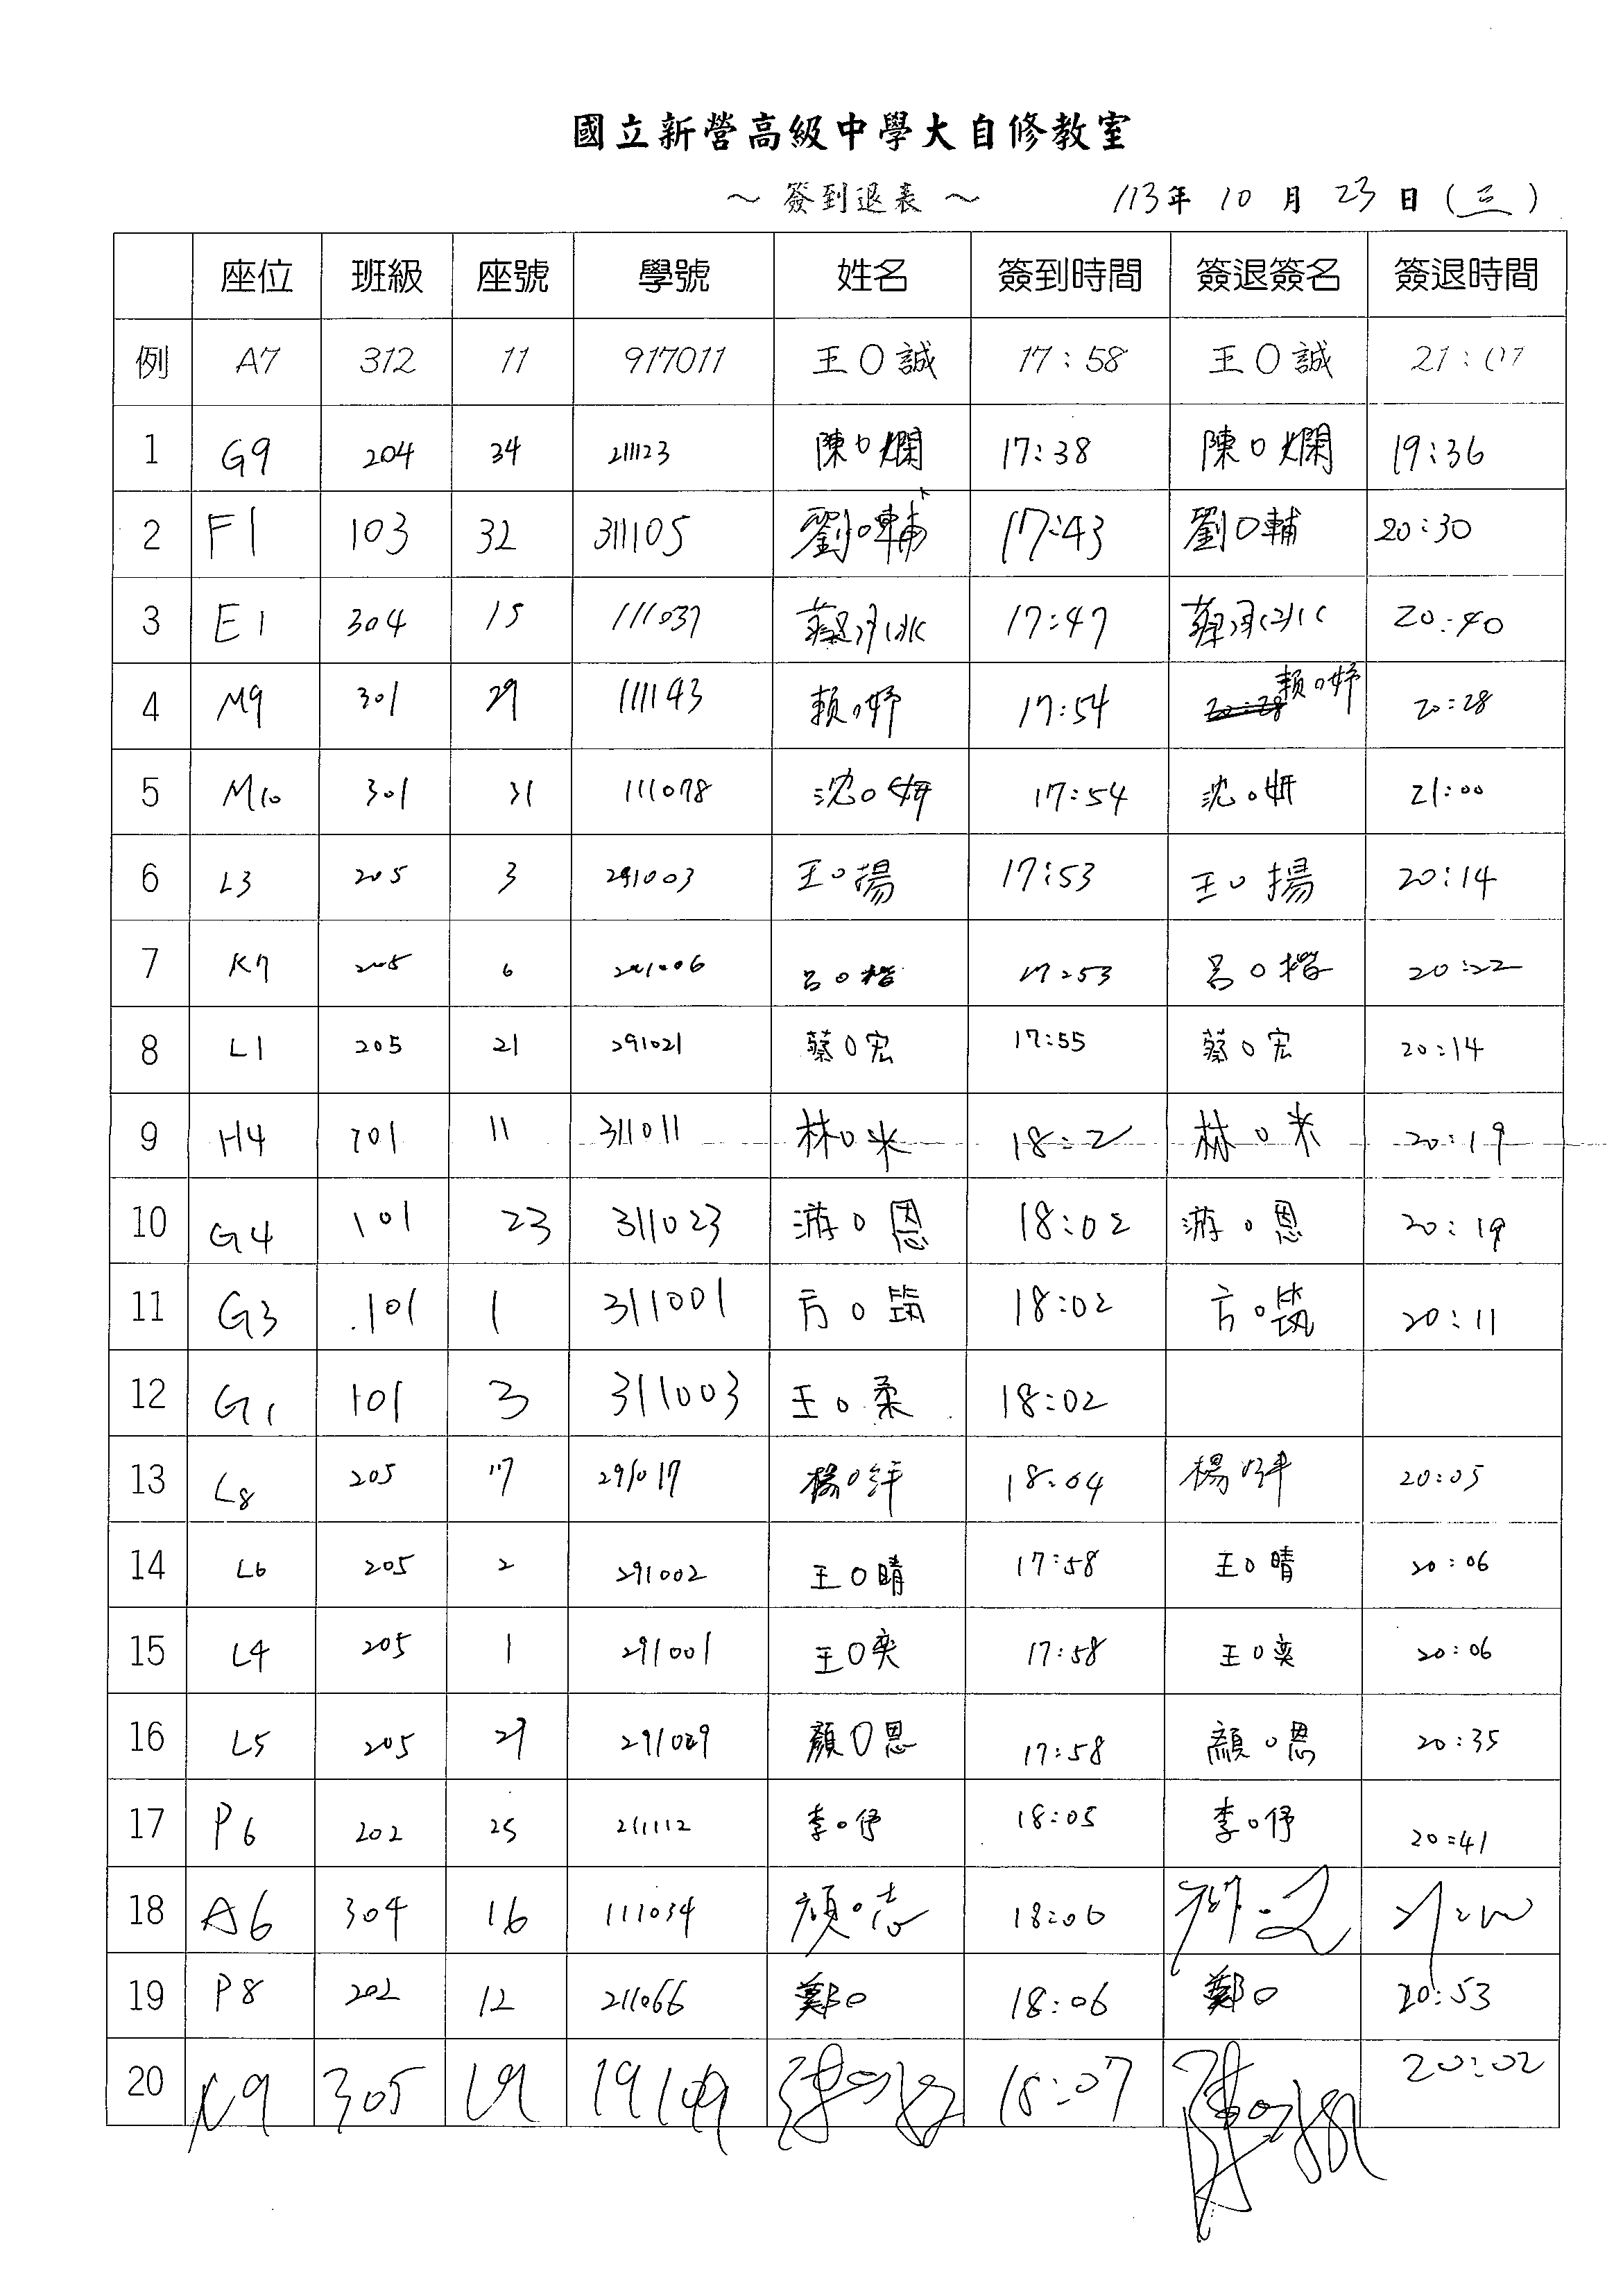 國立新營高級中學大自修教室
～ 簽到退表 ～ 113年 10 月 23 日 (三)
座位 班級 座號 學號 姓名 簽到時間 簽退簽名 簽退時間
例 A7 312 11 917011 王O誠 17:58 王O誠 21:07
1 G9 204 34 211123 陳O爛 17:38 陳O爛 19:36
2 F1 103 32 311105 劉O輔 17:43 劉O輔 20:30
3 E1 304 15 111037 17:47 20:40
4 M9 301 29 111143 賴O妤 17:54 賴O妤 20:28
5 M10 301 31 111078 沈O妍 17:54 沈O妍 21:00
6 L3 205 3 291003 王O揚 17:53 王O揚 20:14
7 K7 205 6 291006 呂O楷 17:53 呂O楷 20:22
8 L1 205 21 291021 蔡O宏 17:55 蔡O宏 20:14
9 H4 101 11 311011 林O米 18:2 林O米 20:19
10 G4 101 23 311023 游O恩 18:02 游O恩 20:19
11 G3 101 1 311001 方O筑 18:02 方O筑 20:11
12 G1 101 3 311003 王O柔 18:02
13 L8 205 17 291017 楊O評 18:04 楊O評 20:05
14 L6 205 2 291002 王O晴 17:58 王O晴 20:06
15 L4 205 1 291001 王O奕 17:58 王O奕 20:06
16 L5 205 29 291029 顏O恩 17:58 顏O恩 20:35
17 P6 202 25 211112 李O伃 18:05 李O伃 20:41
18 A6 304 16 111034 18:06
19 P8 202 12 211066 鄭O 18:06 鄭O 20:53
20 305 19 18:07 20:02